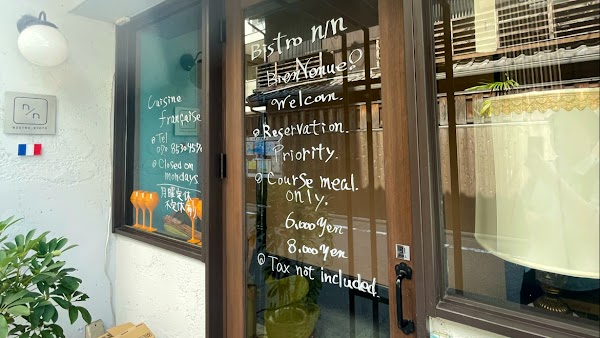 n/n
Cuisine
française
Tel
Closed on
mondays
月曜定休
Bistro n/n
Bienvenue!
Welcom.
Reservation.
Priority.
Course meal.
only.
6.000yen
8.000yen
Tax not included.